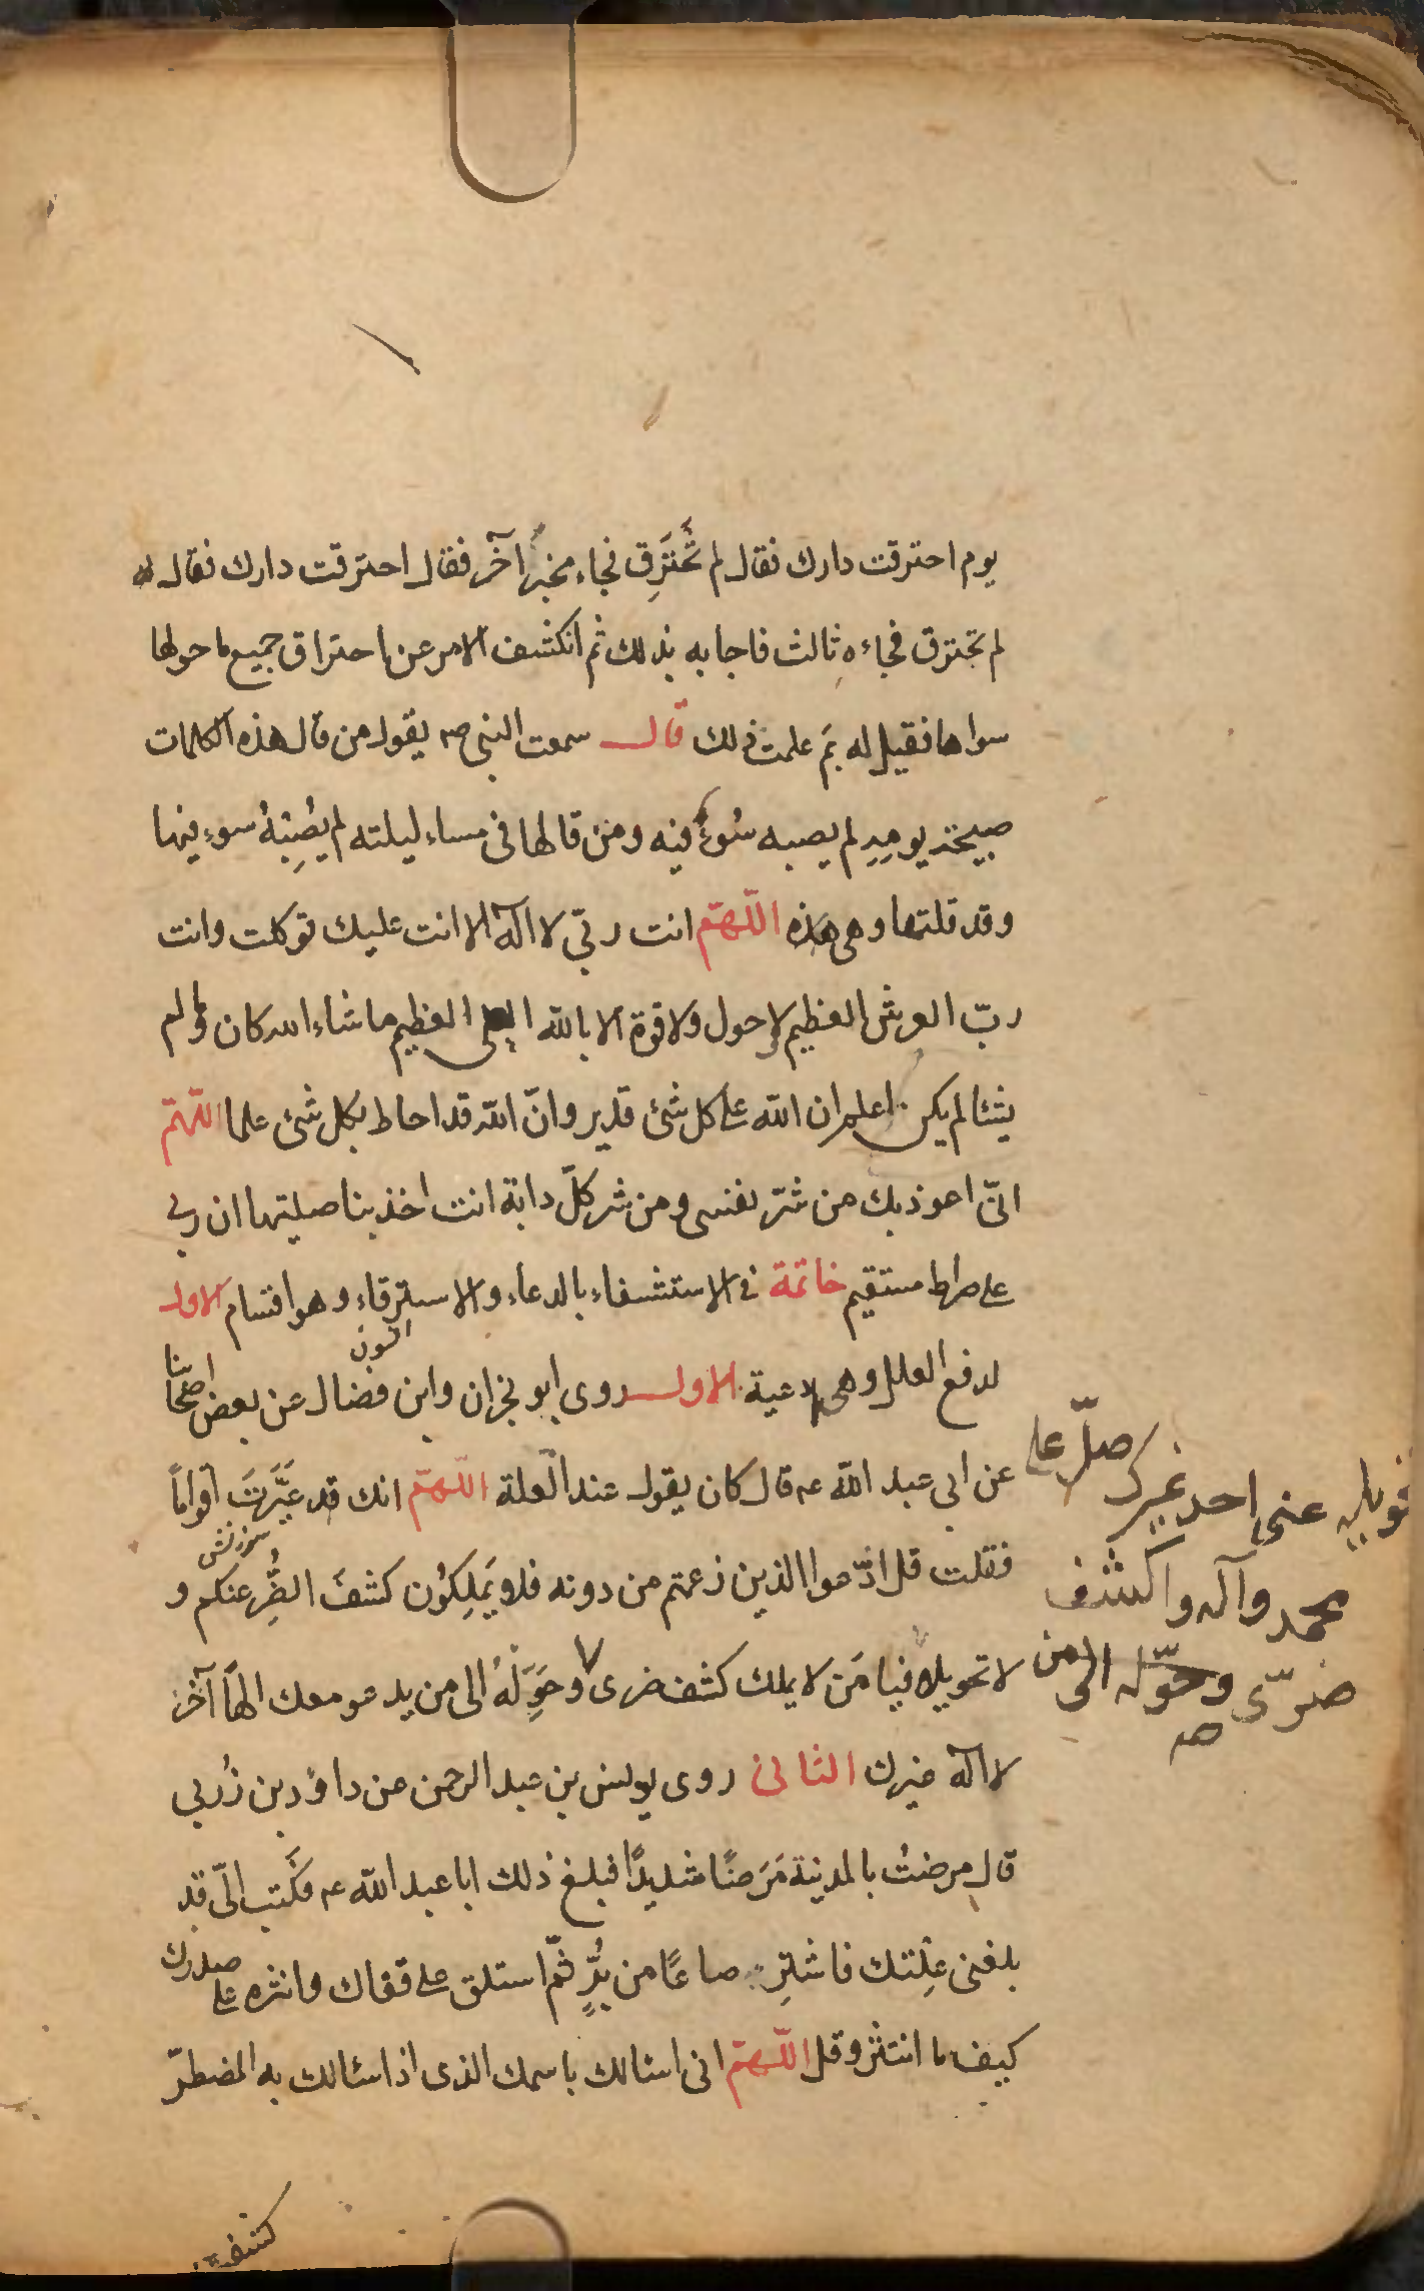 يوم احترقت دارك فقال لم تَحْتَرِق فجاء مخبرٌ آخر فقال احترقت دارك فقال له
لم تحترق فجاءه ثالث فاجابه بذلك ثم انكشف الامر عن احتراق جميع ما حولها
سواها فقيل له بمَ علمت ذلك قال سمعت النبي صم يقول من قال هذه الكلمات
صبيحة يومِهِ لم يصبه سُوءٌ فيه ومن قالها فى مساء ليلته لم يُصِبْهُ سوء فيها
وقد قلتها وهى هذه اللّهمّ انت ربّى لا اله الا انت عليك توكلت وانت
ربّ العرش العظيم لا حول ولا قوة الا بالله العلى العظيم ما شاء الله كان وما لم
يشأ لم يكن اعلم ان الله على كل شئ قدير وانّ الله قد احاط بكل شئ علما اللّهمّ
انّى اعوذ بك من شرّ نفسى ومن شر كلّ دابة انت اخذ بناصيتها ان ربى
على صراط مستقيم خاتمة فى الاستشفاء بالدعاء والاسترقاء وهو اقسام الاول
لدفع العلل وهى ادعية الاول روى ابو نجران وابن فضال عن بعض اصحابنا
عن ابى عبد الله عم قال كان يقول عند العلة اللّهمّ انك قد عَيَّرْتَ اقواماً
فقلت قل ادّعوا الذين زعمتم من دونه فلا يَملِكوُن كشفَ الضُّرِ عنكم و
سرزنش
لا تحويلا فيا مَن لا يملك كشف ضرى ٧ وحَوِّلْهُ الى من يدعو معك الهاً آخر
لا اله غيرك الثانى روى يونس بن عبد الرحمن عن داؤد بن زُربى
قال مرضتُ بالمدينة مَرَضًا شديدًا فبلغ ذلك ابا عبد الله عم فكَتب الىّ قد
بلغنى عِلّتك فاشترِ صاعًا من بُرٍّ ثمّ استلق على قفاك وانثره على صدرك
كيف ما انتثر وقل اللّهمّ انى اسالك باسمك الذى اذا سئالك به المضطرّ
تحويله عنى احد غيرك صلّ على
محمد وآله واكشف
ضرّى وحوّله الى من
صم
كشفت